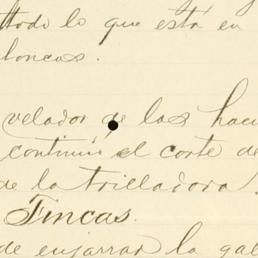 todo lo que está en
loncos.
velador de las haci
continuó el corte de
de la trilladora.
Fincas.
de enjarrar la gal